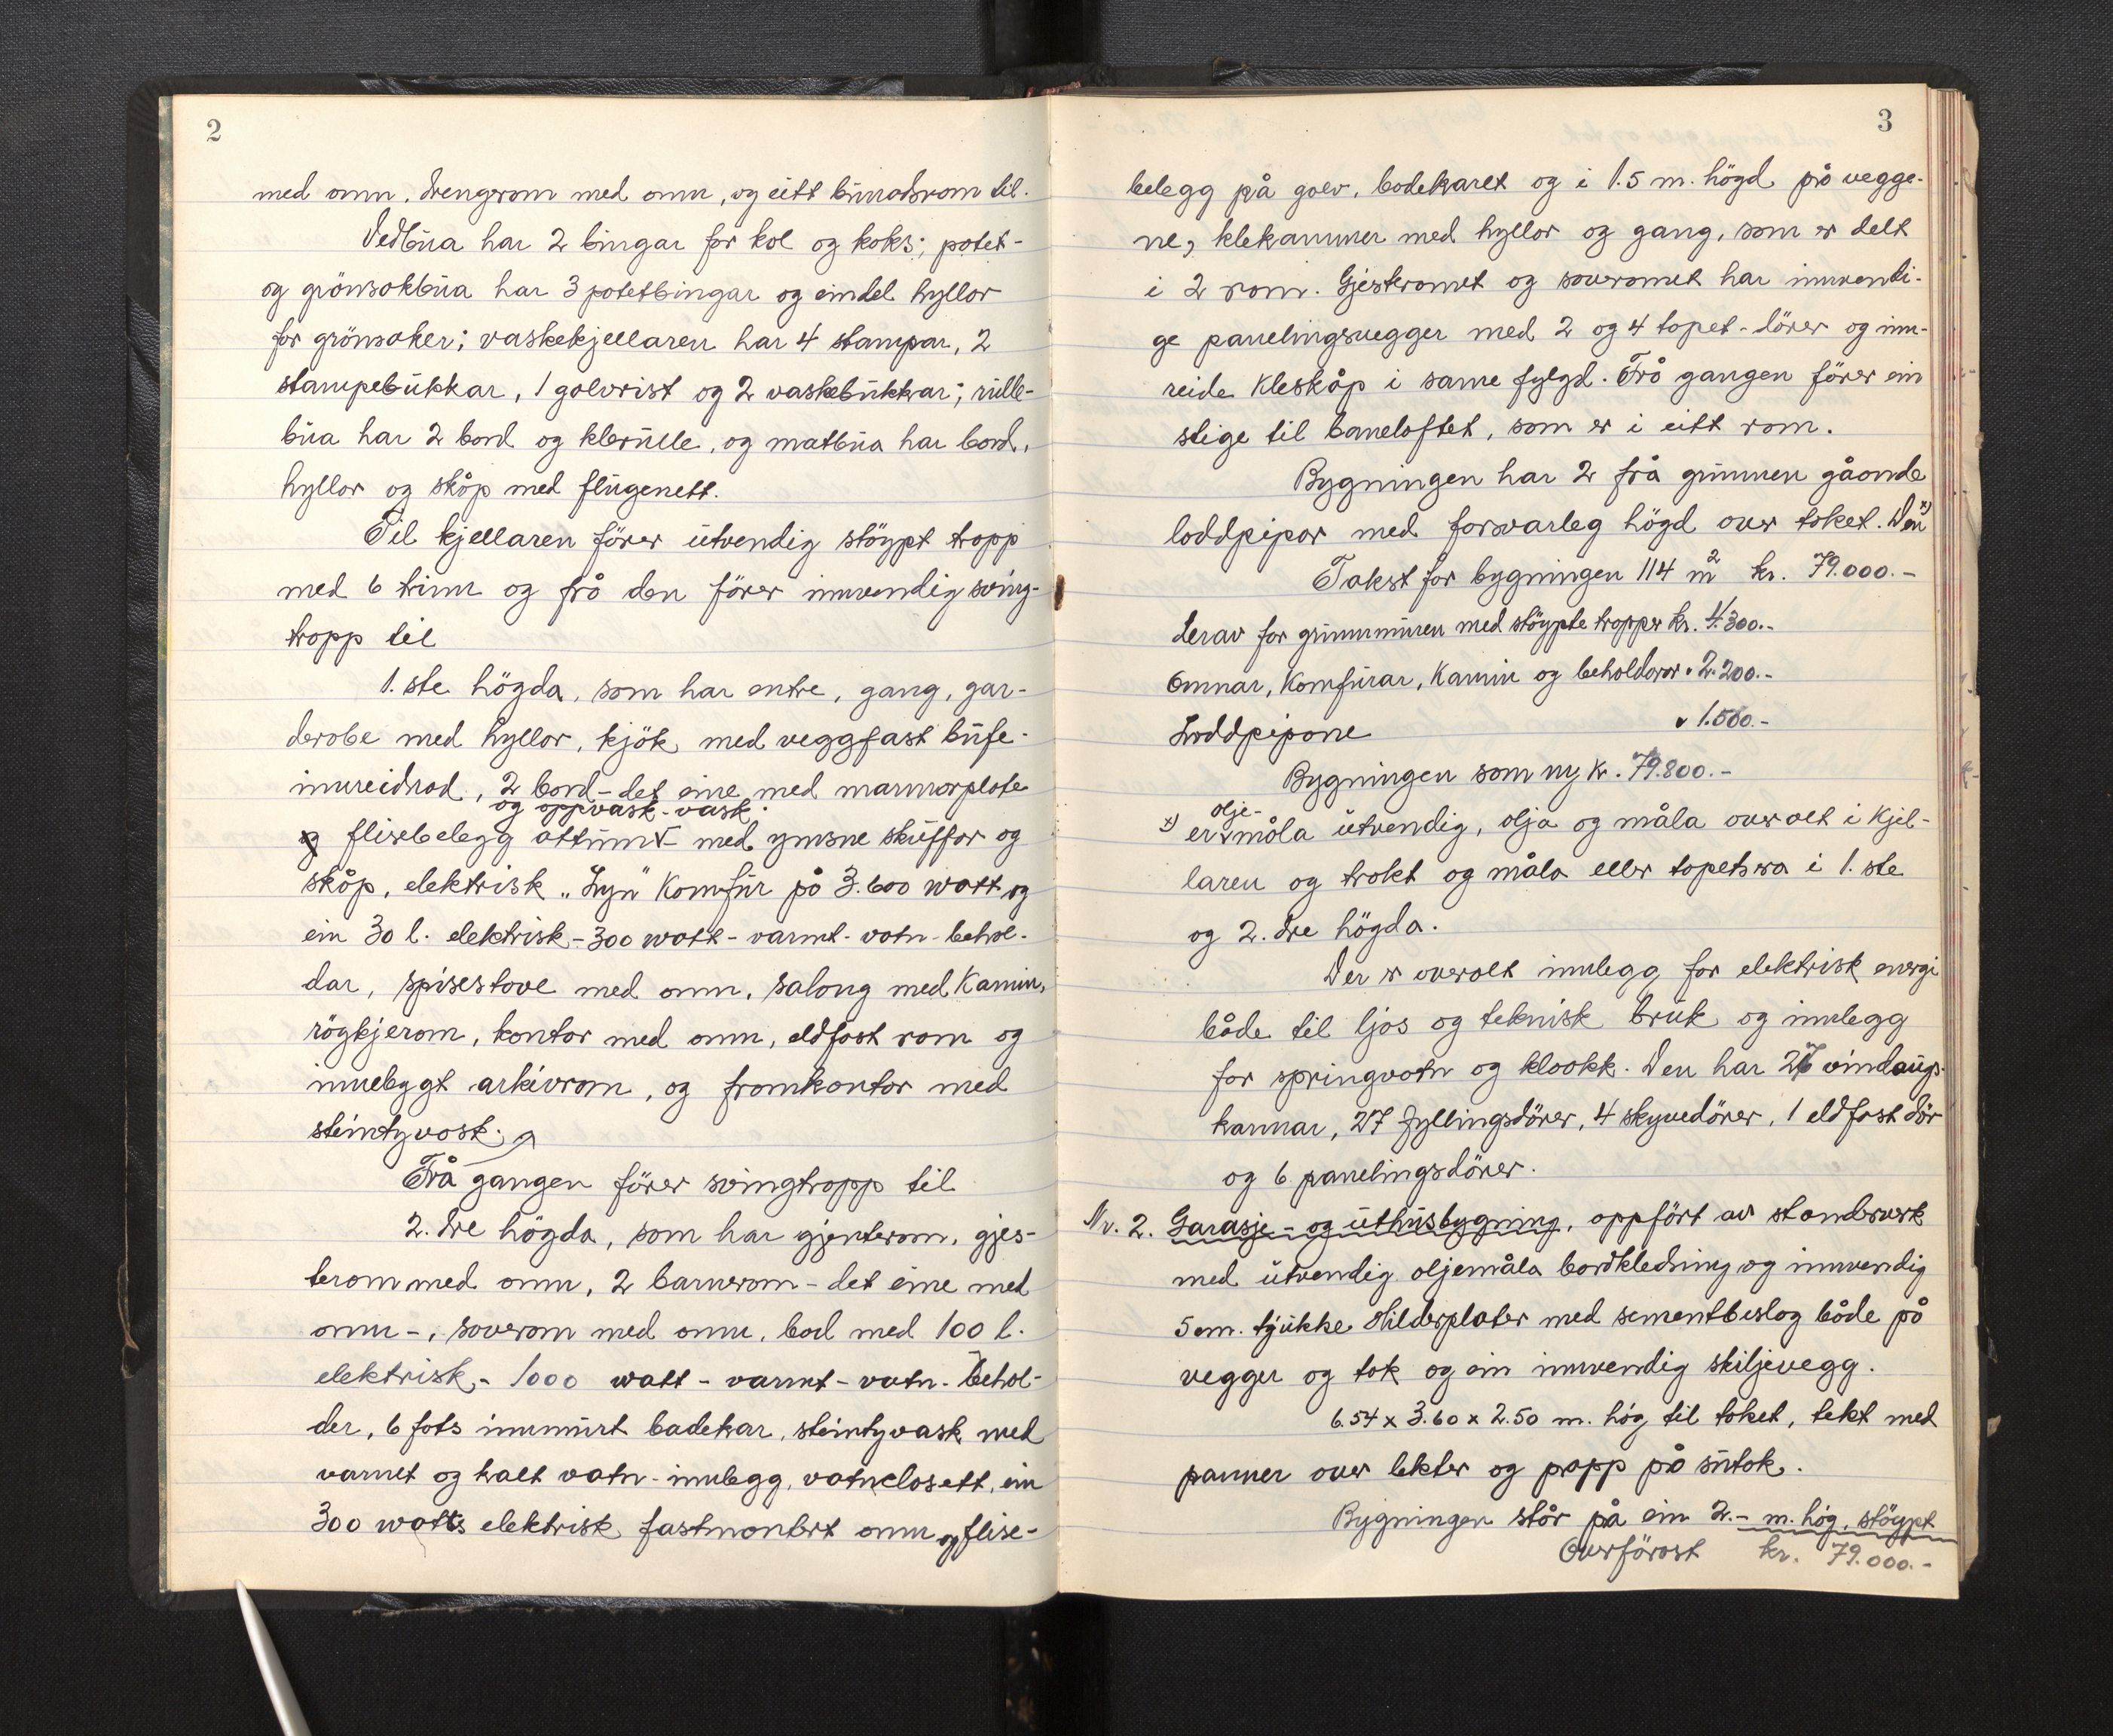 2
med omn, drengrom med omn, og eitt búrodsrom til.
Vedbúa har 2 bingar for kol og koks; potet-
og grönsakbúa har 3 potetbingar og eindel hyllor
for grönsaker; vaskekjellaren har 4 stampar, 2
stampebukkar, 1 golvrist og 2 vaskebukkar; rulle-
búa har 2 bord og klerulle, og matbúa har bord,
hyllor og skåp med flugenett.
Til kjellaren förer utvendig stöypt tropp
med 6 trinn og frå den förer innvendig sving-
tropp til
1. ste högda, som har entre, gang, gar-
derobe med hyllor, kjök med veggfast bufe-
innreidnad, 2 bord - det eine med marmorplate
og oppvask-vask
og flisebelegg attunt - med ymsne skuffor og
skåp, elektrisk „Lyn" komfur på 3.600 watt og
ein 30 l. elektrisk - 300 watt - varmt - vatn - behol-
dar, spisestove med omn, salong med kamin,
rögkjerom, kontor med omn, eldfast rom og
innebygt arkivrom, og framkontor med
steintyvask.
Frå gangen förer svingtropp til
2. dre högda, som har gjenterom, gjes-
terom med omn, 2 barnerom - det eine med
omn -, soverom med omn, bad med 100 l.
elektrisk - 1000 watt - varmt - vatn - behol-
der, 6 fots innmurt badekar, steintyvask med
varmt og kalt vatn - innlegg, vatnclosett, ein
300 watts elektrisk fastmontert omn og flise-
3
belegg på golv, badekaret og i 1.5 m. högd på vegge-
ne, klekammer med hyllor og gang, som er delt
i 2 rom. Gjesteromet og soveromet har innvendi-
ge panelingsvegger med 2 og 4 tapet-dörer og inn-
reide kleskåp i same fylgd. Frå gangen förer ein
stige til baneloftet, som er i eitt rom.
Bygningen har 2 frå grunnen gåande
loddpipor med forsvarleg högd over taket. Den x)
Takst for bygningen 114 m2 kr. 79.000.-
derav for grunnmuren med stöypte tropper kr. 4.300.-
Omnar, Komfurar, Kamin og beholdarar " 2.200.-
Loddpipone " 1.500.-
Bygningen som ny kr. 79.800.-
olje-
x) er måla utvendig, olja og måla overalt i kjel-
laren og trekt og måla eller tapetsera i 1. ste
og 2. dre högda.
Der er overalt innlegg for elektrisk energi
både til ljos og teknisk bruk og innlegg
for springvatn og kloakk. Den har 27 vindaugs-
karmar, 27 fyllingsdörer, 4 skyvedörer, 1 eldfast dör
og 6 panelingsdörer.
Nr. 2. Garasje- og uthusbygning, oppfört av standerverk
med utvendig oljemåla bordkledning og innvendig
5 cm. tjukke Hilderplater med sementbeslag både på
vegger og tak og ein innvendig skiljevegg.
6.54 x 3.60 x 2.50 m. hög til taket, tekt med
panner over lekter og papp på sutak.
Bygningen står på ein 2.- m. hög, stöypt
Overförast kr. 79.000.-